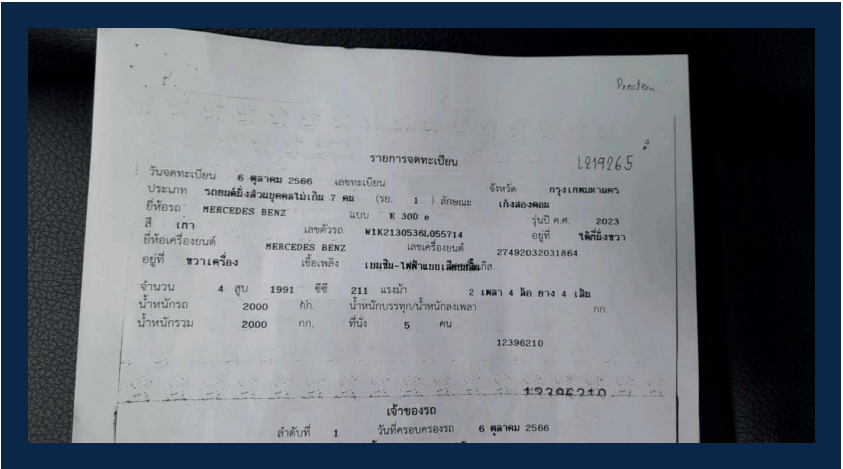 Preecten
L219265
รายการจดทะเบียน
วันจดทะเบียน 6 ตุลาคม 2566 เลขทะเบียน จังหวัด กรุงเทพมหานคร
ประเภท รถยนต์นั่งส่วนบุคคลไม่เกิน 7 คน (รย. 1 ) ลักษณะ เก๋งสองตอน
ยี่ห้อรถ MERCEDES BENZ แบบ E 300 e รุ่นปี ค.ศ. 2023
สี เทา เลขตัวรถ W1K2130536L055714 อยู่ที่ ใต้ที่นั่งขวา
ยี่ห้อเครื่องยนต์ MERCEDES BENZ เลขเครื่องยนต์ 27492032031864
อยู่ที่ ขวาเครื่อง เชื้อเพลิง เบนซิน-ไฟฟ้าแบบเสียบปลั๊ก
จำนวน 4 สูบ 1991 ซีซี 211 แรงม้า 2 เพลา 4 ล้อ ยาง 4 เส้น
น้ำหนักรถ 2000 กก. น้ำหนักบรรทุก/น้ำหนักลงเพลา กก.
น้ำหนักรวม 2000 กก. ที่นั่ง 5 คน
12396210
12396210
เจ้าของรถ
ลำดับที่ 1 วันที่ครอบครองรถ 6 ตุลาคม 2566